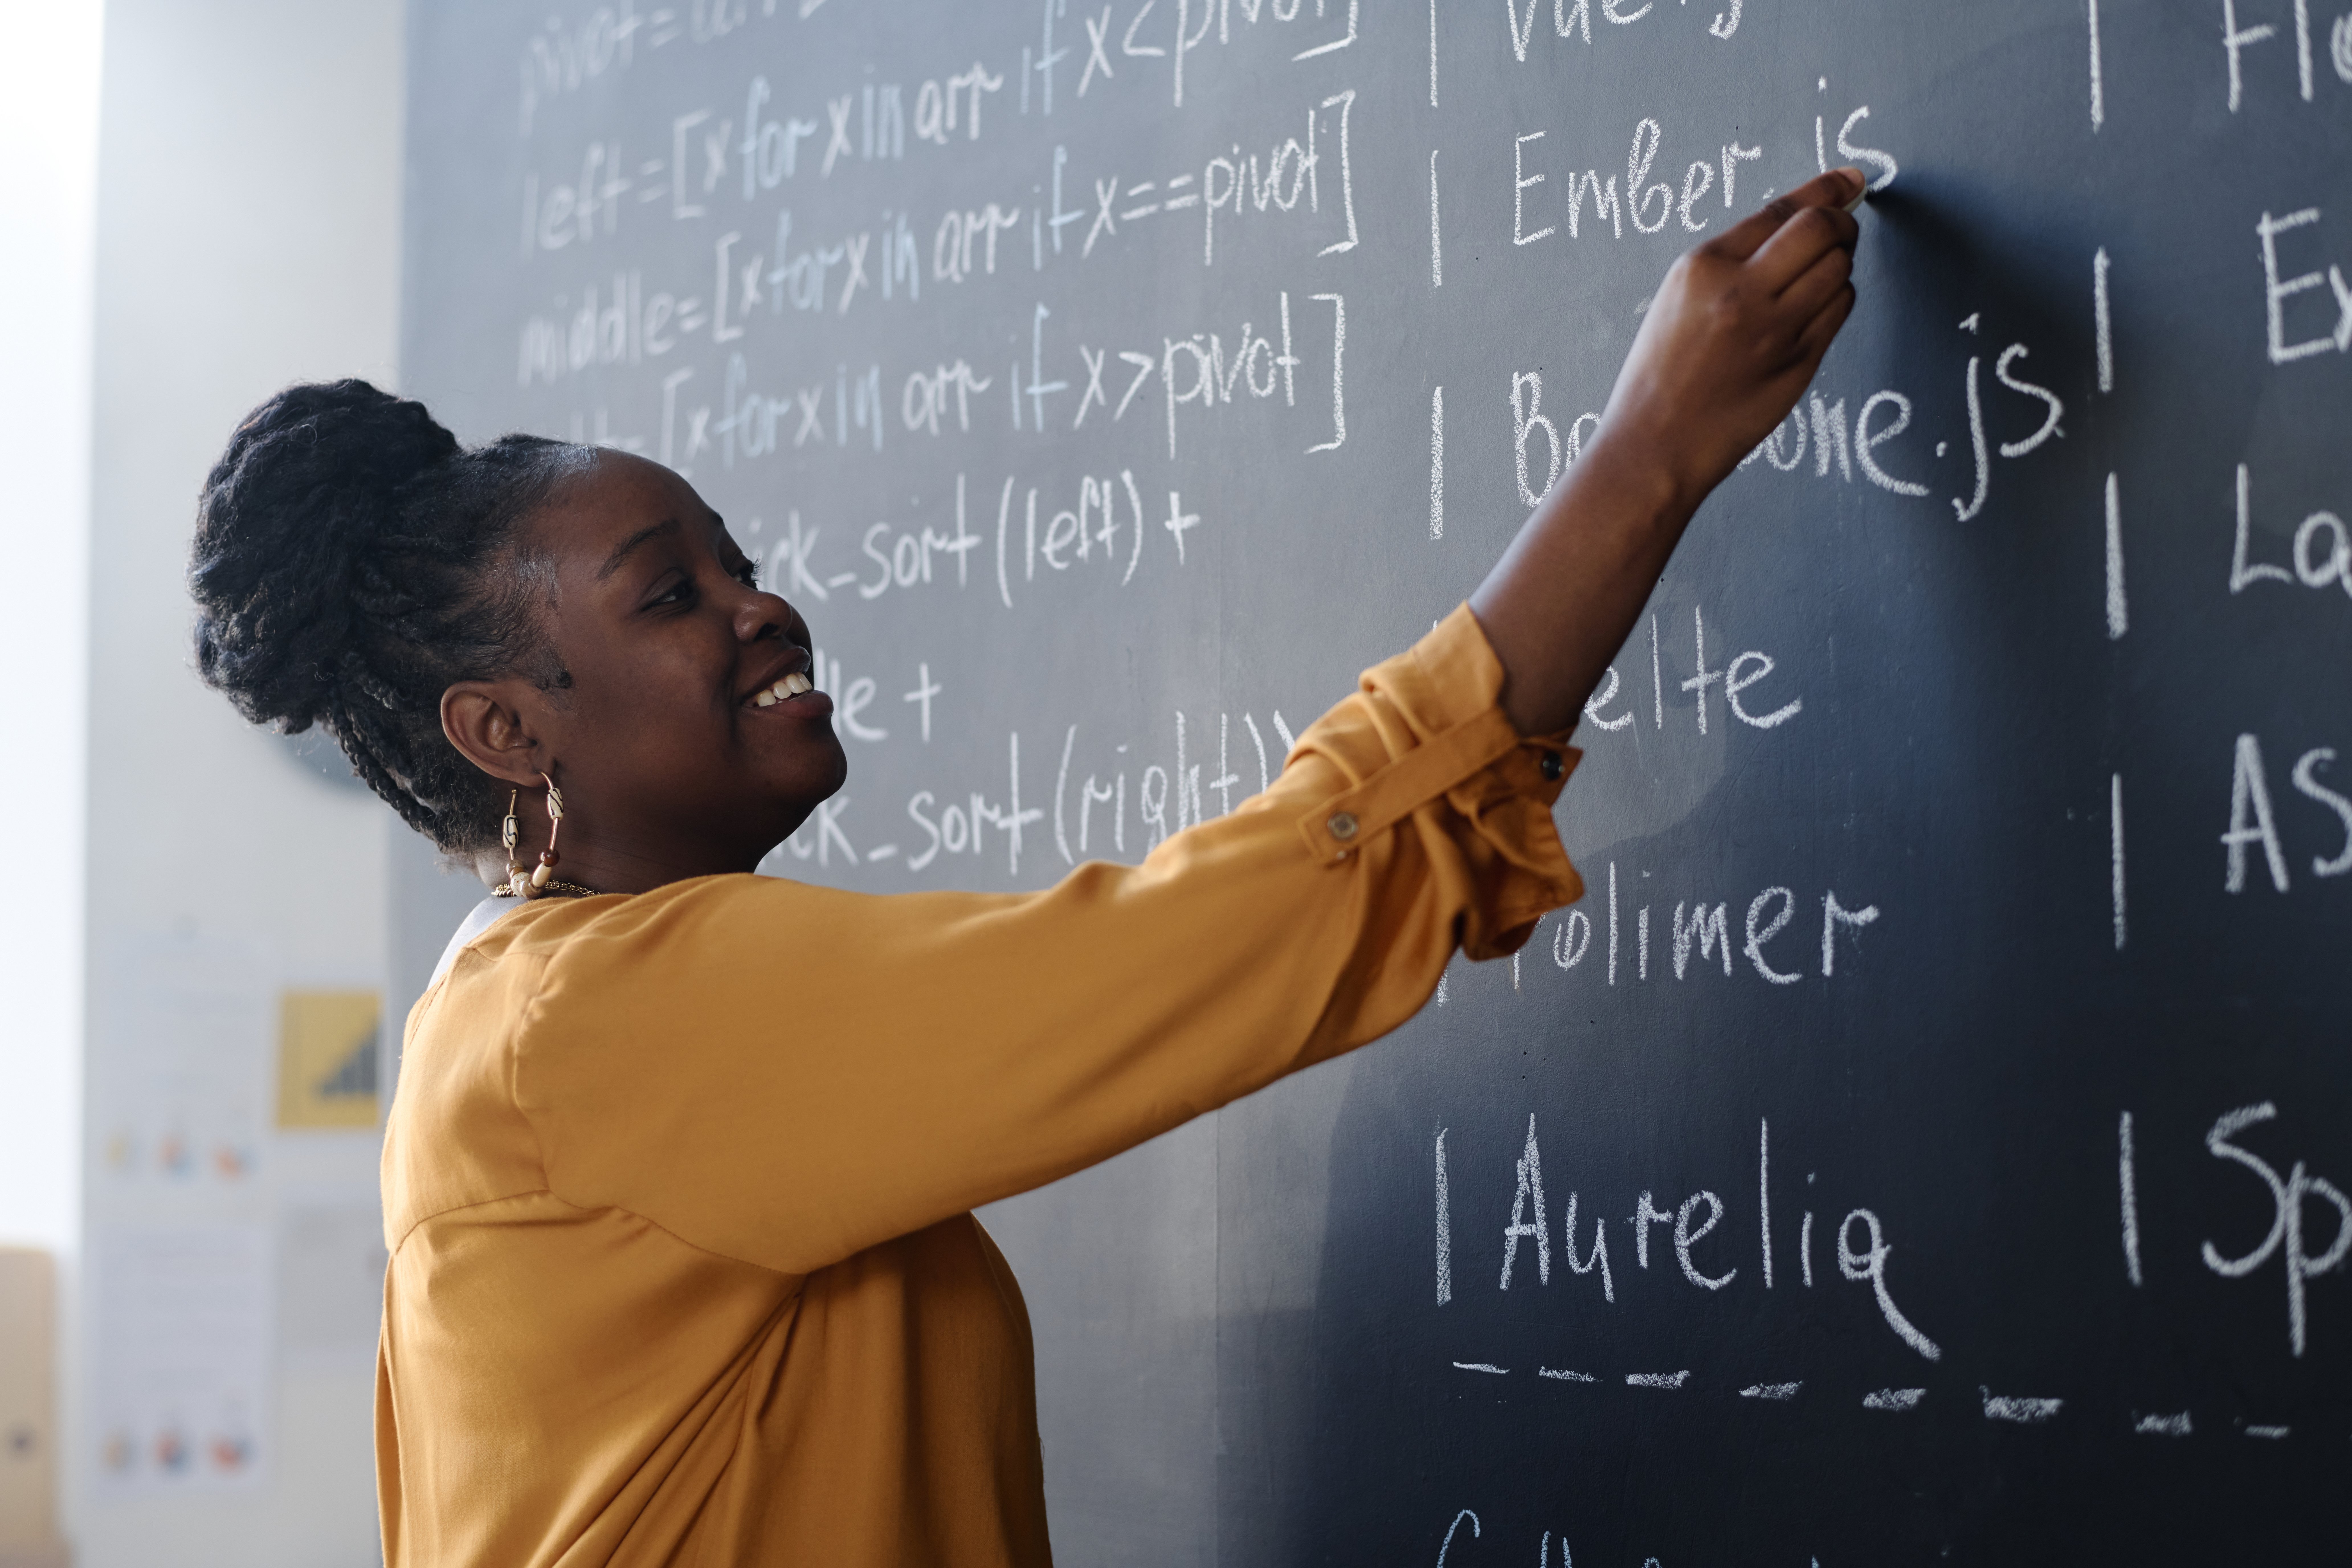 left=[x for x in arr if x<pivot]
middle=[x for x in arr if x==pivot]
=[x for x in arr if x>pivot]
ick_sort(left)+
le +
ck_sort(right))
| Vue.js
| Ember.js
| Ba one.js
elte
olimer
| Aurelia
| Fl
| Ex
| La
| AS
| Sp